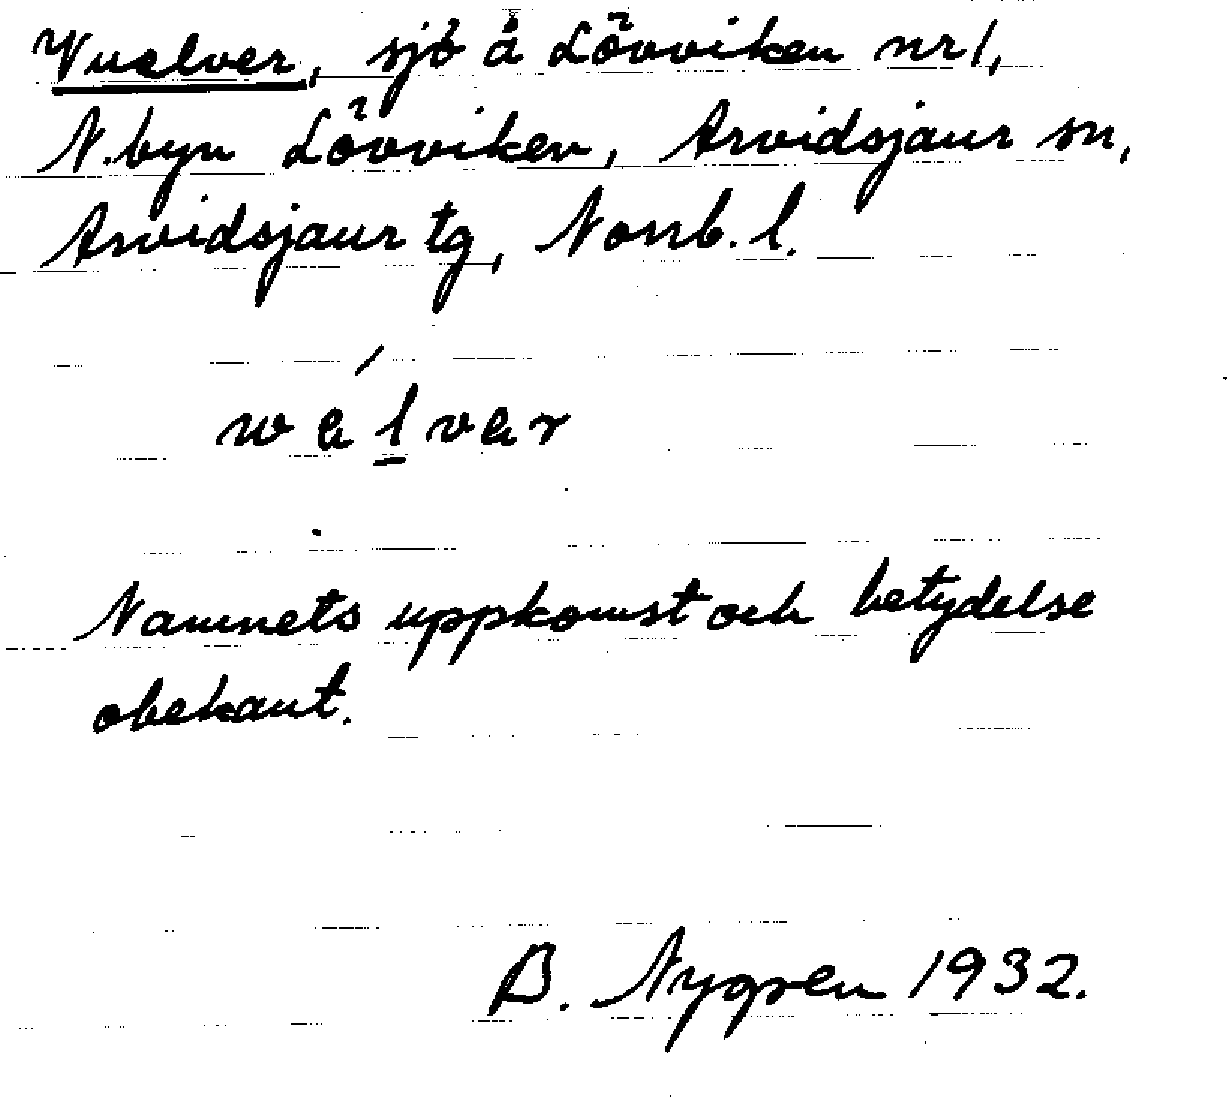 Vuelver, sjö å Lövviken nr 1,
N. byn Lövviken, Arvidsjaur sn,
Arvidsjaur tg, Norrb. l.
Namnets uppkomst och betydelse
obekant.
B. Nygren 1932.